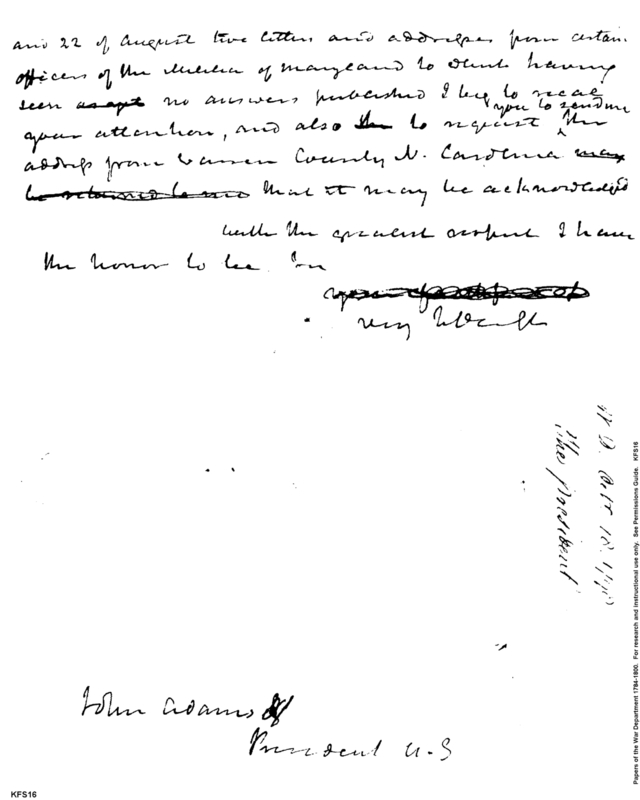 and 22 of August two letters and addresses from certain
officers of the Militia of Maryland to which having
seen no answers published I beg to recal
you to send me
your attention, and also to request the
address from Warren County N. Carolina may
be returned to me that it may be acknowledged
with the greatest respect I have
the honor to be Yr
very
John Adams
President U.S
The President
Papers of the War Department 1784-1800. For research and instructional use only. See Permissions Guide. KFS16
KFS16